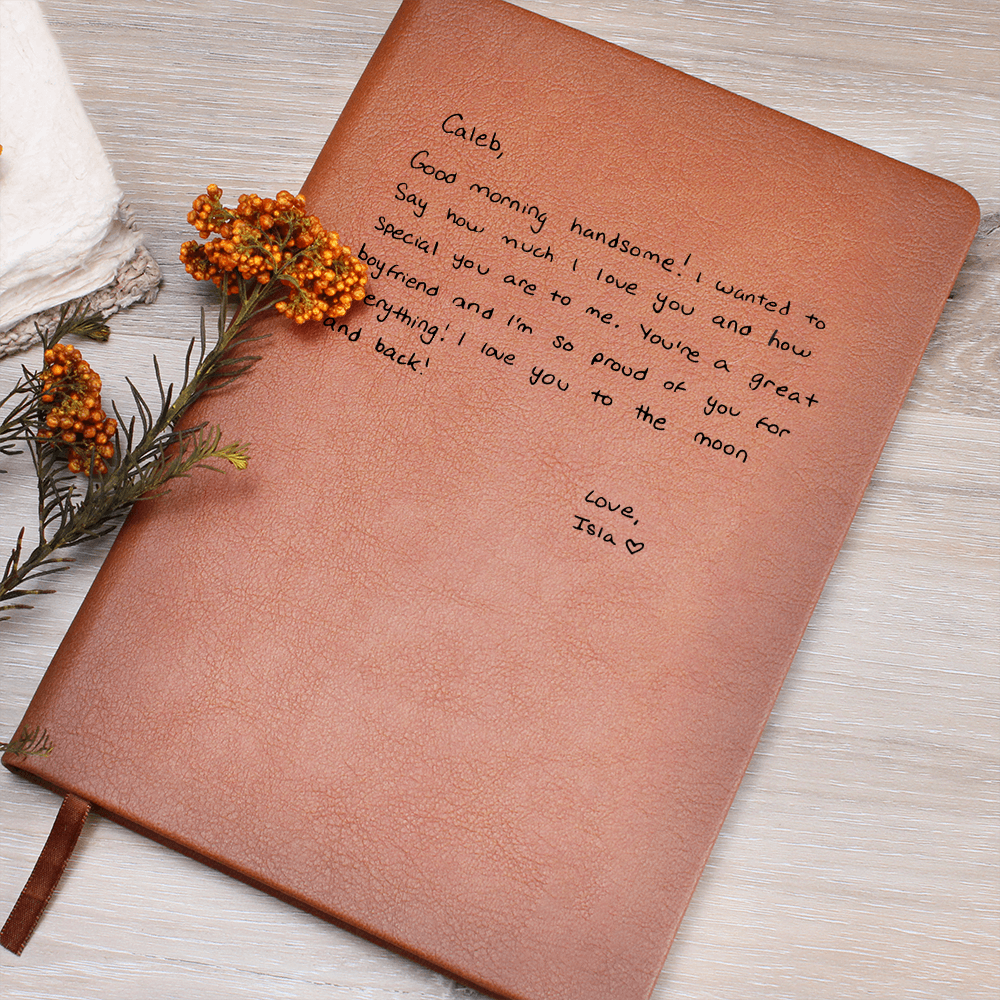 Caleb,
Good morning handsome! I wanted to
Say how much I love you and how
special you are to me. You're a great
boyfriend and I'm so proud of you for
erything! I love you to the moon
and back!
Love,
Isla ♡